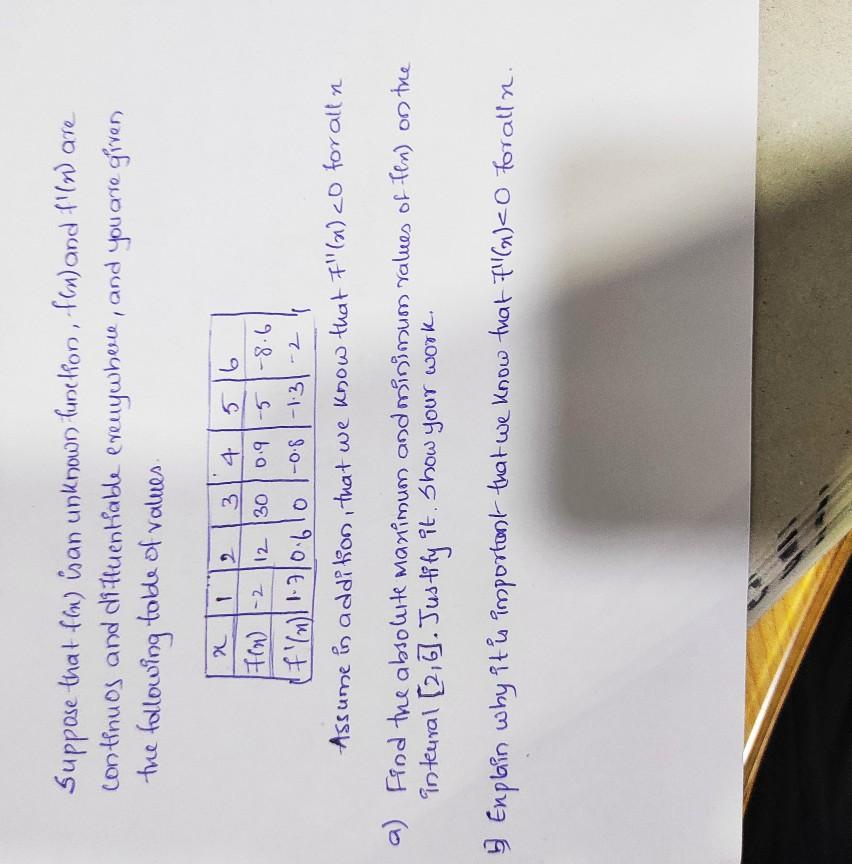 Suppose that f(x) is an unknown function, f(x) and f'(x) are
continuos and differentiable everywhere, and you are given
the following table of values.
x | 1 | 2 | 3 | 4 | 5 | 6
f(x) | -2 | 12 | 30 | 0.9 | -5 | -8.6
f'(x) | 1.7 | 0.6 | 0 | -0.8 | -1.3 | -2
Assume in addition, that we know that f"(x) <0 for all x
a) Find the absolute maximum and minimum values of f(x) on the
interval [2,6]. Justify it. Show your work.
b) Explain why it is important that we know that f"(x)<0 for all x.